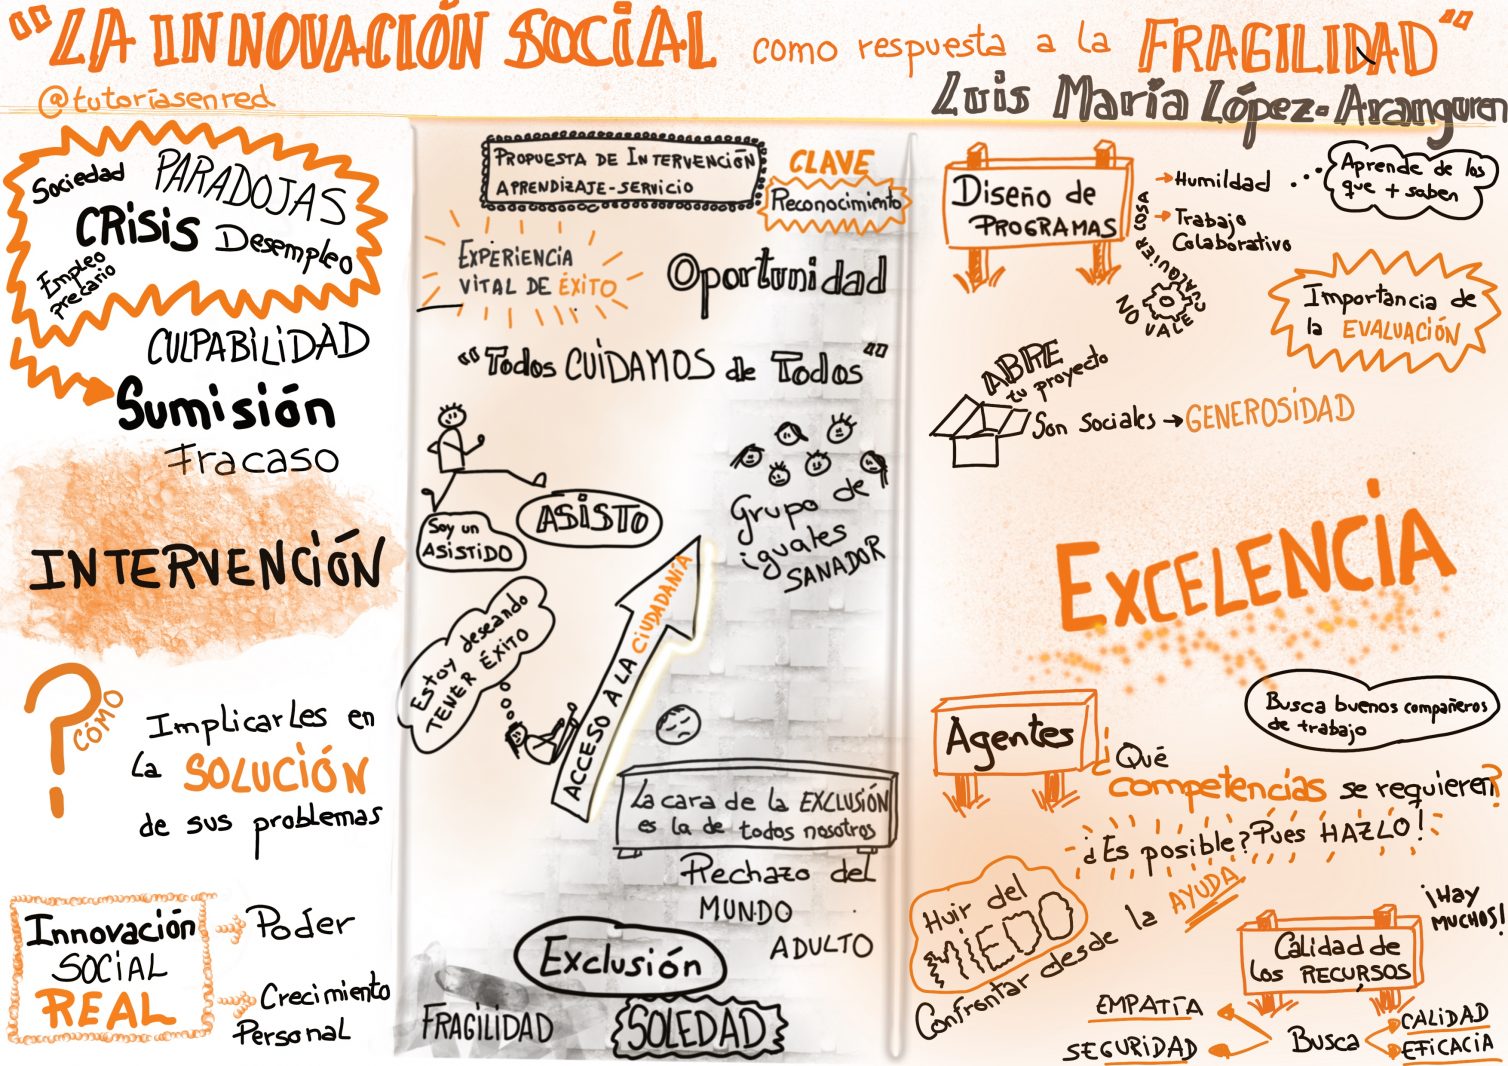 "LA INNOVACIÓN SOCIAL como respuesta a la FRAGILIDAD"
@tutoriasenred
Luis María López-Aranguren
Sociedad
PARADOJAS
CRISIS
Desempleo
Empleo
precario
CULPABILIDAD
Sumisión
Fracaso
INTERVENCIÓN
? CÓMO
Implicarles en
la SOLUCIÓN
de sus problemas
Innovación
SOCIAL
REAL
Poder
Crecimiento
Personal
PROPUESTA DE INTERVENCIÓN
APRENDIZAJE-SERVICIO
CLAVE
Reconocimiento
EXPERIENCIA
VITAL DE ÉXITO
Oportunidad
"Todos CUIDAMOS de Todos"
Soy un
ASISTIDO
ASISTO
Grupo de
iguales
SANADOR
Estoy deseando
TENER ÉXITO
ACCESO A LA CIUDADANÍA
La cara de la EXCLUSIÓN
es la de todos nosotros
Rechazo del
MUNDO
ADULTO
Exclusión
FRAGILIDAD
SOLEDAD
Diseño de
PROGRAMAS
Humildad ...
Aprende de los
que + saben
Trabajo
Colaborativo
NO VALE CUALQUIER COSA
Importancia de
la EVALUACIÓN
ABRE
tu proyecto
Son sociales → GENEROSIDAD
EXCELENCIA
Agentes
Busca buenos compañeros
de trabajo
¿Qué
competencias se requieren?
¿Es posible? Pues HAZLO!
Huir del
MIEDO
Confrontar desde la AYUDA
¡HAY
MUCHOS!
Calidad de
los RECURSOS
EMPATÍA
SEGURIDAD
Busca
CALIDAD
EFICACIA